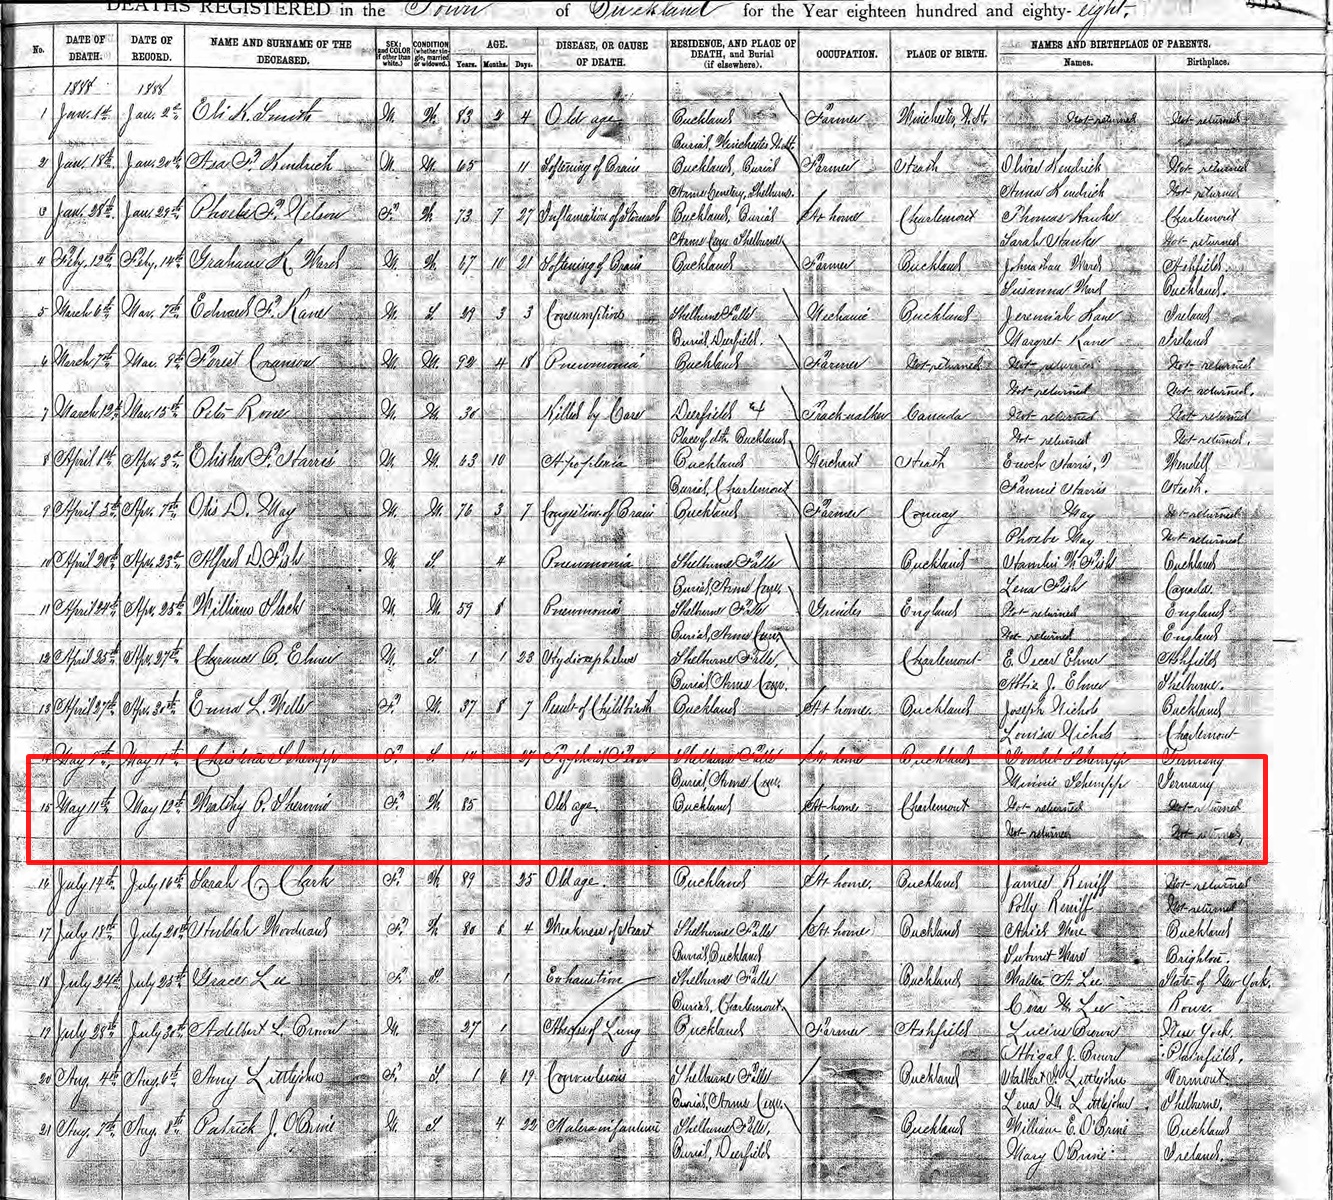 DEATHS REGISTERED in the Town of Buckland for the Year eighteen hundred and eighty-eight.
No. DATE OF DEATH. DATE OF RECORD. NAME AND SURNAME OF THE DECEASED. SEX; and COLOR (if other than white.) CONDITION (whether single, married or widowed.) AGE. Years. Months. Days. DISEASE, OR CAUSE OF DEATH. RESIDENCE, AND PLACE OF DEATH, and Burial (if elsewhere). OCCUPATION. PLACE OF BIRTH. NAMES AND BIRTHPLACE OF PARENTS. Names. Birthplace.
1888 1888
1 Jan. 1st Jan. 2d Eli K. Smith M. W. 83 2 4 Old age Buckland Farmer Winchester, N.H. Not returned Not returned
Burial, Winchester N.H.
2 Jan. 18th Jan. 20th Asa F. Kendrick M. M. 65 11 Softening of Brain Buckland, Burial Farmer Heath Oliver Kendrick Not returned
Arms Cemetery, Shelburne. Anna Kendrick Not returned
3 Jan. 28th Jan. 29th Phoebe F. Nelson F. W. 73 7 27 Inflamation of Stomach Buckland, Burial At home Charlemont Thomas Hawks Charlemont
Arms Cem. Shelburne Sarah Hawks Not returned
4 Feby. 13th Feby. 14th Graham K. Ward M. W. 67 10 21 Softening of Brain Buckland Farmer Buckland Johnathan Ward Ashfield
Susanna Ward Buckland.
5 March 6th Mar. 7th Edward F. Kane M. S. 29 3 3 Consumption Shelburne Falls Mechanic Buckland Jeremiah Kane Ireland
Burial, Deerfield. Margret Kane Ireland
6 March 7th Mar. 9th Forest Cranson M. M. 92 4 18 Pneumonia Buckland Farmer Not returned Not returned Not returned
Not returned Not returned.
7 March 12th Mar. 15th Peter Rone M. M. 30 Killed by Cars Deerfield Track-walker Canada Not returned Not returned
Place of dth. Buckland Not returned Not returned.
8 April 1st Apr. 3d Elisha F. Harris M. M. 63 10 Apoplexia Buckland Merchant Heath Enoch Harris. Wendell
Burial, Charlemont Fannie Harris Heath.
9 April 5th Apr. 7th Otis D. May M. M. 76 3 7 Congestion of Brain Buckland Farmer Conway May Not returned
Phoebe May Not returned
10 April 20th Apr. 23d Alfred D. Fish M. S. 4 Pneumonia Shelburne Falls Buckland Hamlin W. Fish Buckland
Burial, Arms Cem. Lena Fish Canada.
11 April 24th Apr. 25th William Slack M. M. 59 8 Pneumonia Shelburne Falls Grinder England Not returned England
Burial, Arms Cem. Not returned England
12 April 25th Apr. 27th Clarence B. Elmer M. S. 1 1 23 Hydrocephelus Shelburne Falls, Charlemont E. Oscar Elmer Ashfield
Burial Arms Cem. Abbie J. Elmer Shelburne.
13 April 27th Apr. 30th Emma L. Wells F. M. 37 8 7 Result of Childbirth Buckland At home. Buckland Joseph Nichols Buckland
Louisa Nichols Charlemont
14 May 11th Christina Schempp F. S. 27 Typhoid Fever Shelburne Falls At home Buckland Schempp Germany
Burial, Arms Cem. Minnie Schempp Germany
15 May 11th May 12th Wealthy P. Sherwin F. W. 85 Old age Buckland At home Charlemont Not returned Not returned
Not returned Not returned
16 July 14th July 16th Sarah C. Clark F. W. 89 25 Old age. Buckland At home. Buckland James Reniff Not returned
Polly Reniff Not returned
17 July 18th July 20th Huldah Woodward F. W. 80 6 4 Weakness of Heart Shelburne Falls At home Buckland Ware Buckland
Burial Buckland Submit Ware Brighton.
18 July 24th July 25th Grace Lee F. S. 1 Exhaustion Shelburne Falls Buckland Walter A. Lee State of New York.
Burial, Charlemont. Cora M. Lee Rowe.
19 July 28th July 30th Adelbert L. Brown M. 27 1 Abcess of Lung Buckland Farmer Ashfield Lucius Brown New York.
Abigal J. Brown Plainfield.
20 Aug. 4th Aug. 6th Amy Littlejohn F. S. 1 6 19 Convulsions Shelburne Falls Buckland Littlejohn Vermont.
Burial, Arms Cem. Lena M. Littlejohn Shelburne.
21 Aug. 7th Aug. 8th Patrick J. O'Brine M. S. 4 22 Cholera infantum Shelburne Falls, Buckland William E. O'Brine Buckland
Burial, Deerfield Mary O'Brine Ireland.